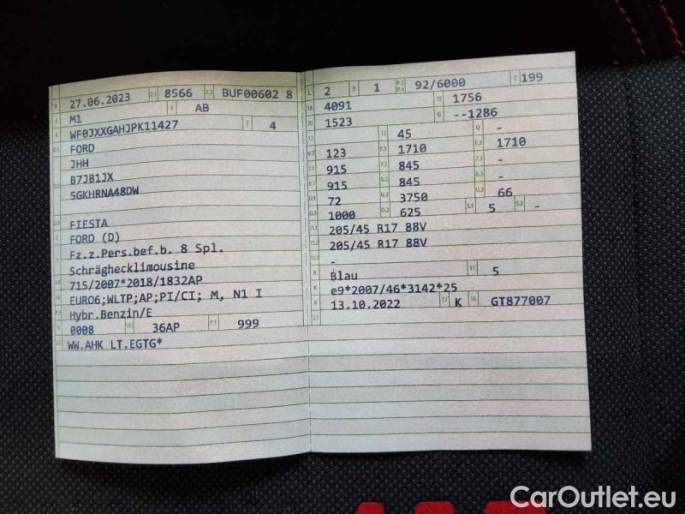 27.06.2023 8566 BUF00602 8
M1 AB
WF0JXXGAHJPK11427 4
FORD
JHH
B7JB1JX
5GKHRNA48DW
FIESTA
FORD (D)
Fz.z.Pers.bef.b. 8 Spl.
Schräghecklimousine
715/2007*2018/1832AP
EURO6;WLTP;AP;PI/CI; M, N1 I
Hybr.Benzin/E
0008 36AP 999
WW.AHK LT.EGTG*
2 1 92/6000 199
4091 1756
1523 --1286
45 -
123 1710 1710
915 845 -
915 845 -
72 3750 66
1000 625 5 -
205/45 R17 88V
205/45 R17 88V
-
Blau 5
e9*2007/46*3142*25
13.10.2022 K GT877007
CarOutlet.eu